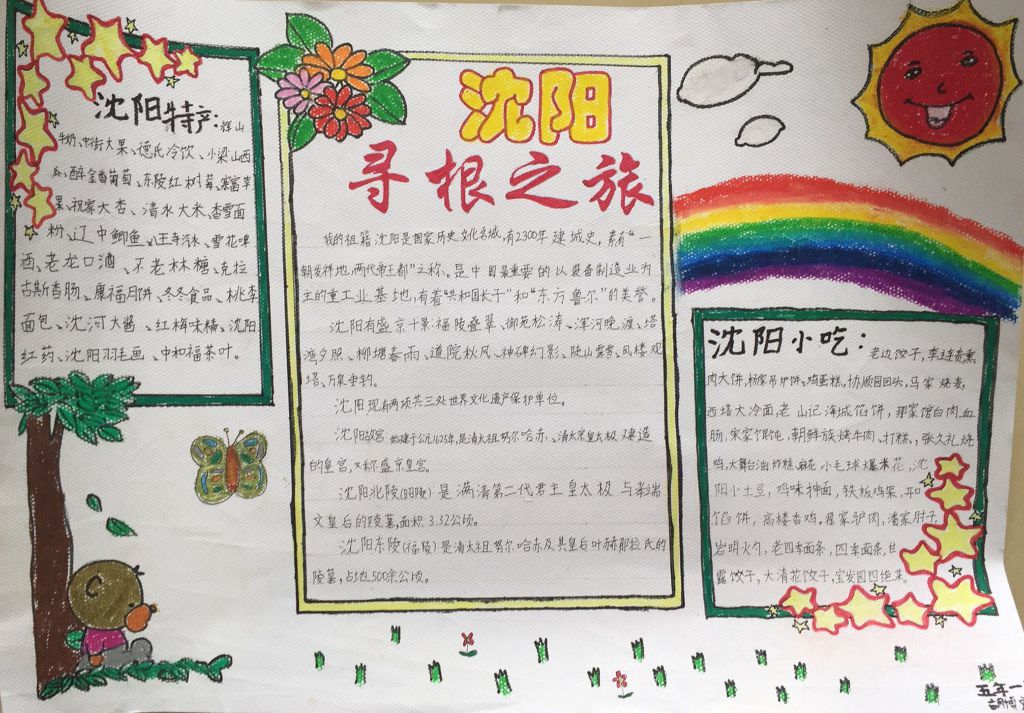 沈阳特产：辉山
牛奶、中街大果、德氏冷饮、小梁山西
瓜、醉金香葡萄、东陵红树莓、寒富苹
果、祝家大杏、清水大米、香雪面
粉、辽中鲫鱼、八王寺汽水、雪花啤
酒、老龙口酒、不老林糖、克拉
古斯香肠、康福月饼、冬冬食品、桃李
面包、沈河大酱、红梅味精、沈阳
红药、沈阳羽毛画、中和福茶叶。
沈阳
寻根之旅
我的祖籍沈阳是国家历史文化名城，有2300年建城史，素有“一
朝发祥地，两代帝王都”之称，是中国最重要的以装备制造业为
主的重工业基地，有着“共和国长子”和“东方鲁尔”的美誉。
沈阳有盛京十景：福陵叠翠、御苑松涛、浑河晚渡、塔
湾夕照、柳塘春雨、道院秋风、神碑幻影、陡山霁雪、凤楼观
塔、万泉垂钓。
沈阳现有两项共三处世界文化遗产保护单位。
沈阳故宫 始建于公元1625年，是清太祖努尔哈赤、清太宗皇太极建造
的皇宫，又称盛京皇宫。
沈阳北陵(昭陵)是满清第二代君主皇太极与孝端
文皇后的陵墓，面积3.32公顷。
沈阳东陵(福陵)是清太祖努尔哈赤及其皇后叶赫那拉氏的
陵墓，占地500余公顷。
沈阳小吃：老边饺子，李连贵熏
肉大饼，杨家吊炉饼、鸡蛋糕，协顺园回头，马家烧麦，
西塔大冷面，老山记海城馅饼，那家馆白肉血
肠，宋家馄饨，朝鲜族烤牛肉、打糕，张久礼烧
鸡，大舞台油炸糕、麻花，小毛球爆米花，沈
阳小土豆，鸡味抻面，铁板鸡架，
馅饼，高楼香鸡，崔家驴肉，潘家肘子，
岩明火勺，老四季面条，四季面条，甘
露饺子，大清花饺子，宝发园四绝菜。
五年一